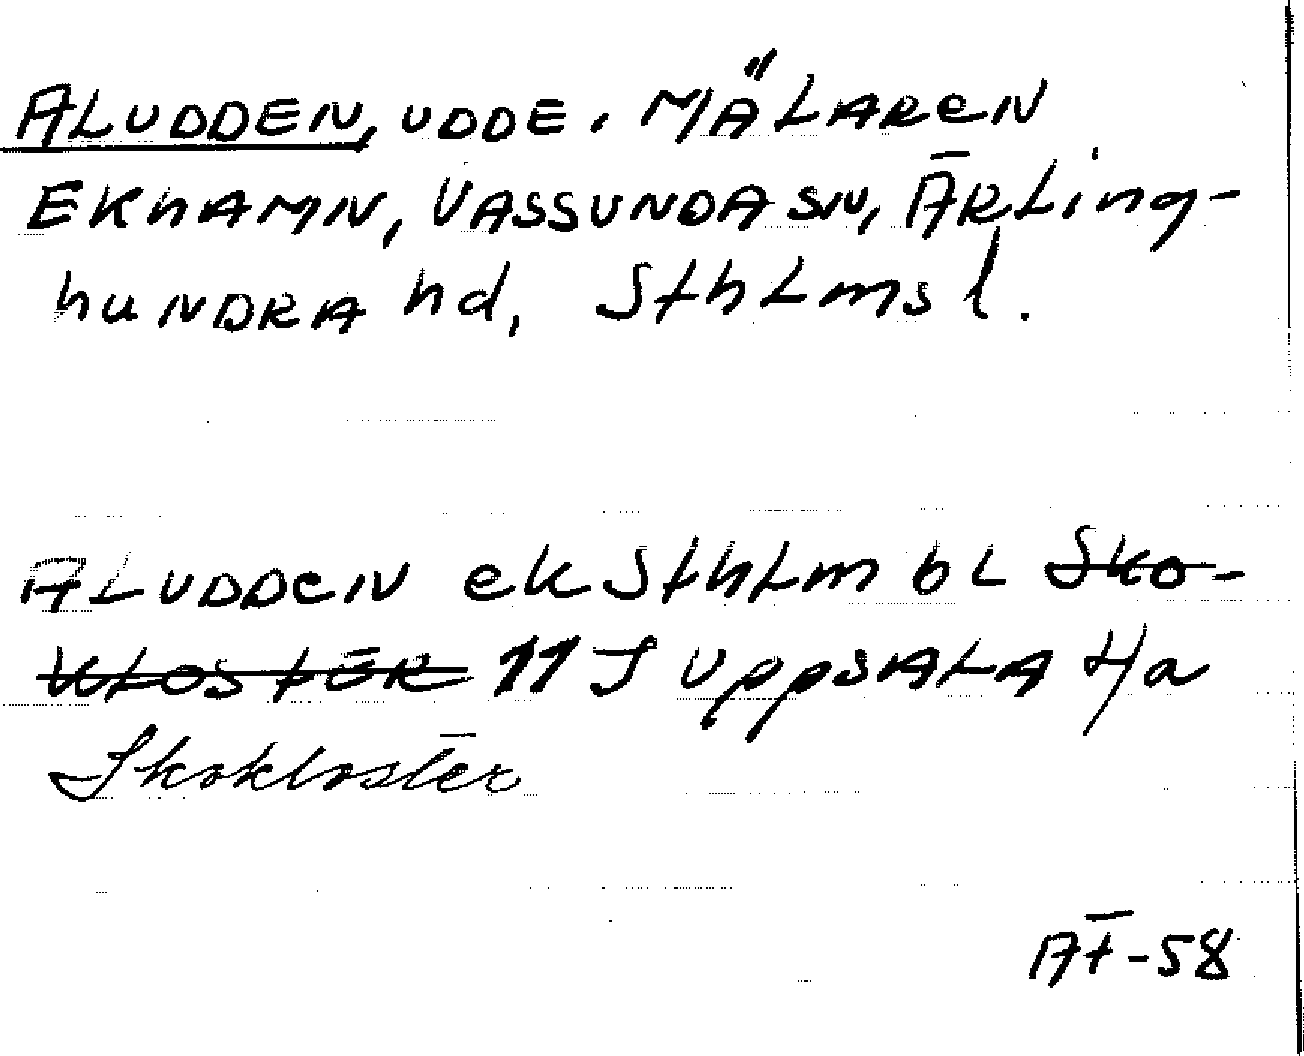 ALUDDEN, UDDE. MÄLAREN
EKHAMN, VASSUNDA SN, ÄRLing-
huNDRA hd, SthLms l.
ALUDDeN ek SthLm bL Sko-
KLOSTER 11 J UppSALA t/a
Skokloster
AT-58